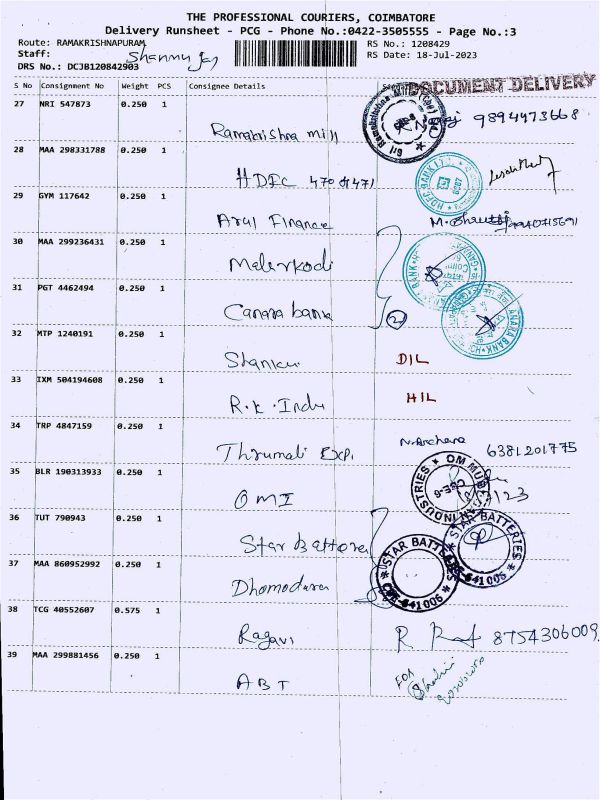 THE PROFESSIONAL COURIERS, COIMBATORE
Delivery Runsheet - PCG - Phone No.:0422-3505555 - Page No.:3
Route: RAMAKRISHNAPURAM RS No.: 1208429
Staff: RS Date: 18-Jul-2023
DRS No.: DCJB120842903
DOCUMENT DELIVERY
S No Consignment No Weight PCS Consignee Details
27 NRI 547873 0.250 1
Ramakrishna mill 9894473668
28 MAA 298331788 0.250 1
HDFC 470 471
29 GYM 117642 0.250 1
Arul Finance
30 MAA 299236431 0.250 1
Malarkodi
31 PGT 4462494 0.250 1
Canara bank 2
32 MTP 1240191 0.250 1
DIL
33 IXM 504194608 0.250 1
R.K. Indu HIL
34 TRP 4847159 0.250 1
Thirumali Exp. N. Archana 6381201775
35 BLR 190313933 0.250 1
OMI
36 TUT 790943 0.250 1
Star Battery STAR BATTERIES 641006
37 MAA 860952992 0.250 1
STAR BATTERIES 641006
38 TCG 40552607 0.575 1
Ragavi 8754306009
39 MAA 299881456 0.250 1
ABT FOR